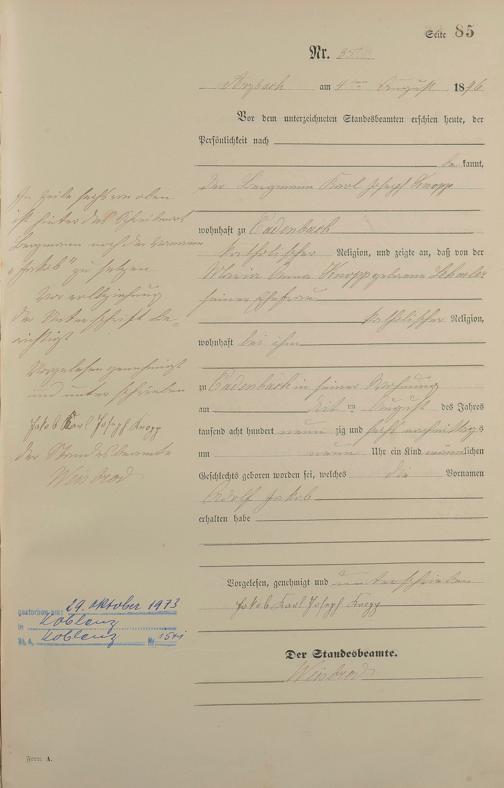 Seite 85
Nr.
Arzbach am 4ten August 1896
Vor dem unterzeichneten Standesbeamten erschien heute, der
Persönlichkeit nach
be kannt,
der Bergmann Karl Joseph Knopp
wohnhaft zu Cadenbach
katholischer Religion, und zeigte an, daß von der
Maria Anna Knopp geborene
seiner Ehefrau
katholischer Religion,
wohnhaft bei ihm
zu Cadenbach in seiner Wohnung
am ten August des Jahres
tausend acht hundert neun zig und sechs nachmittags
um neun Uhr ein Kind männlichen
Geschlechts geboren worden sei, welches die Vornamen
Adolf Jakob
erhalten habe
Vorgelesen, genehmigt und unterschrieben
Jakob Karl Joseph Knopp
Der Standesbeamte.
Weisbrod
In Zeile sechs von oben
ist hinter das
Bergmann noch der Vorname
"Jakob" zu setzen
Vor Vollziehung
der Unterschrift be-
richtigt
Vorgelesen genehmigt
und unterschrieben
Jakob Karl Joseph Knopp
der Standesbeamte
Weisbrod
gestorben am: 29. Oktober 1973
in Koblenz
St. A. Koblenz Nr.
Form A.